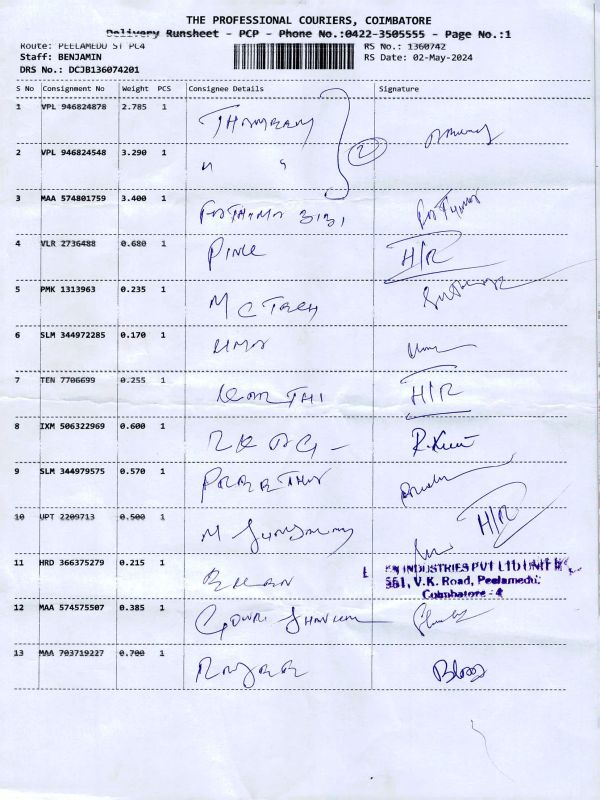 THE PROFESSIONAL COURIERS, COIMBATORE
Delivery Runsheet - PCP - Phone No.:0422-3505555 - Page No.:1
Route: PEELAMEDU ST PC4 RS No.: 1360742
Staff: BENJAMIN RS Date: 02-May-2024
DRS No.: DCJB136074201
S No Consignment No Weight PCS Consignee Details Signature
1 VPL 946824878 2.785 1
2 VPL 946824548 3.290 1 " " 2
3 MAA 574801759 3.400 1 FATHIMA BIBI FATHIMA
4 VLR 2736488 0.680 1 H/R
5 PMK 1313963 0.235 1 M C TECH
6 SLM 344972285 0.170 1 UMA
7 TEN 7706699 0.255 1 KARTHI H/R
8 IXM 506322969 0.600 1 R.Kumar
9 SLM 344979575 0.570 1
10 UPT 2209713 0.500 1 M H/R
11 HRD 366375279 0.215 1 INDUSTRIES PVT LTD UNIT
561, V.K. Road, Peelamedu,
Coimbatore - 4
12 MAA 574575507 0.385 1 GOWRI SHANKAR
13 MAA 703719227 0.700 1